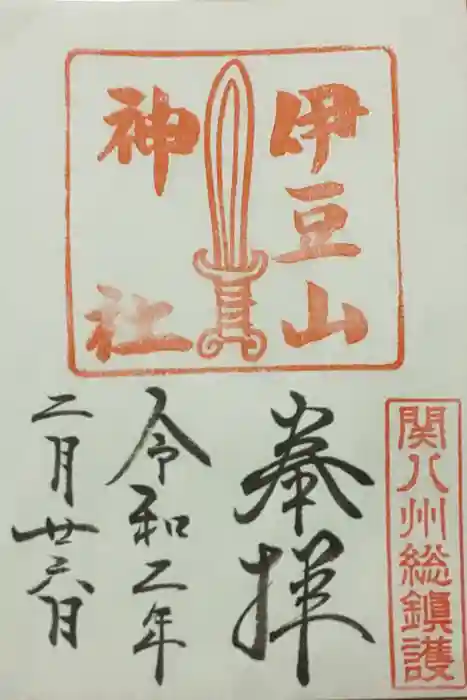 伊豆山
神社
関八州総鎮護
奉拝
令和二年
二月廿三日